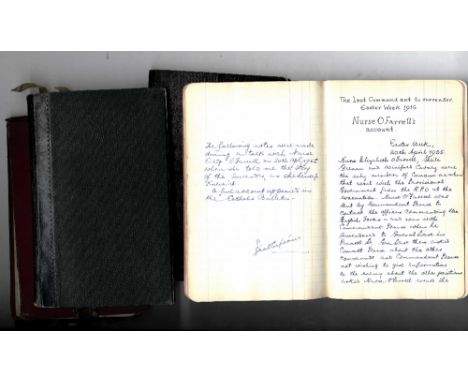 The following notes were made
during a talk with Nurse
when she told me the story
of the Surrender, as she
A full account appeared in
the Catholic Bulletin.
The Last Command not to surrender,
Easter Week 1916.
Nurse O'Farrell's
account.
Easter Week,
20th April
Nurse Elizabeth O'Farrell, Julia
Grenan and Winifred Carney were
the only members of Cumann na mBan
that were with the Provisional
Government from the G.P.O. at the
evacuation. Nurse O'Farrell was
sent by Commandant Pearse to
contact the Officers Commanding the
English Forces
Commandant Pearse when he
surrendered to General Lowe in
Parnell St. Gen. Lowe then asked
Comdt Pearse about the other
Commandants and Commandant Pearse
not wishing to give information
to the enemy about the other positions
asked Nurse O'Farrell would she